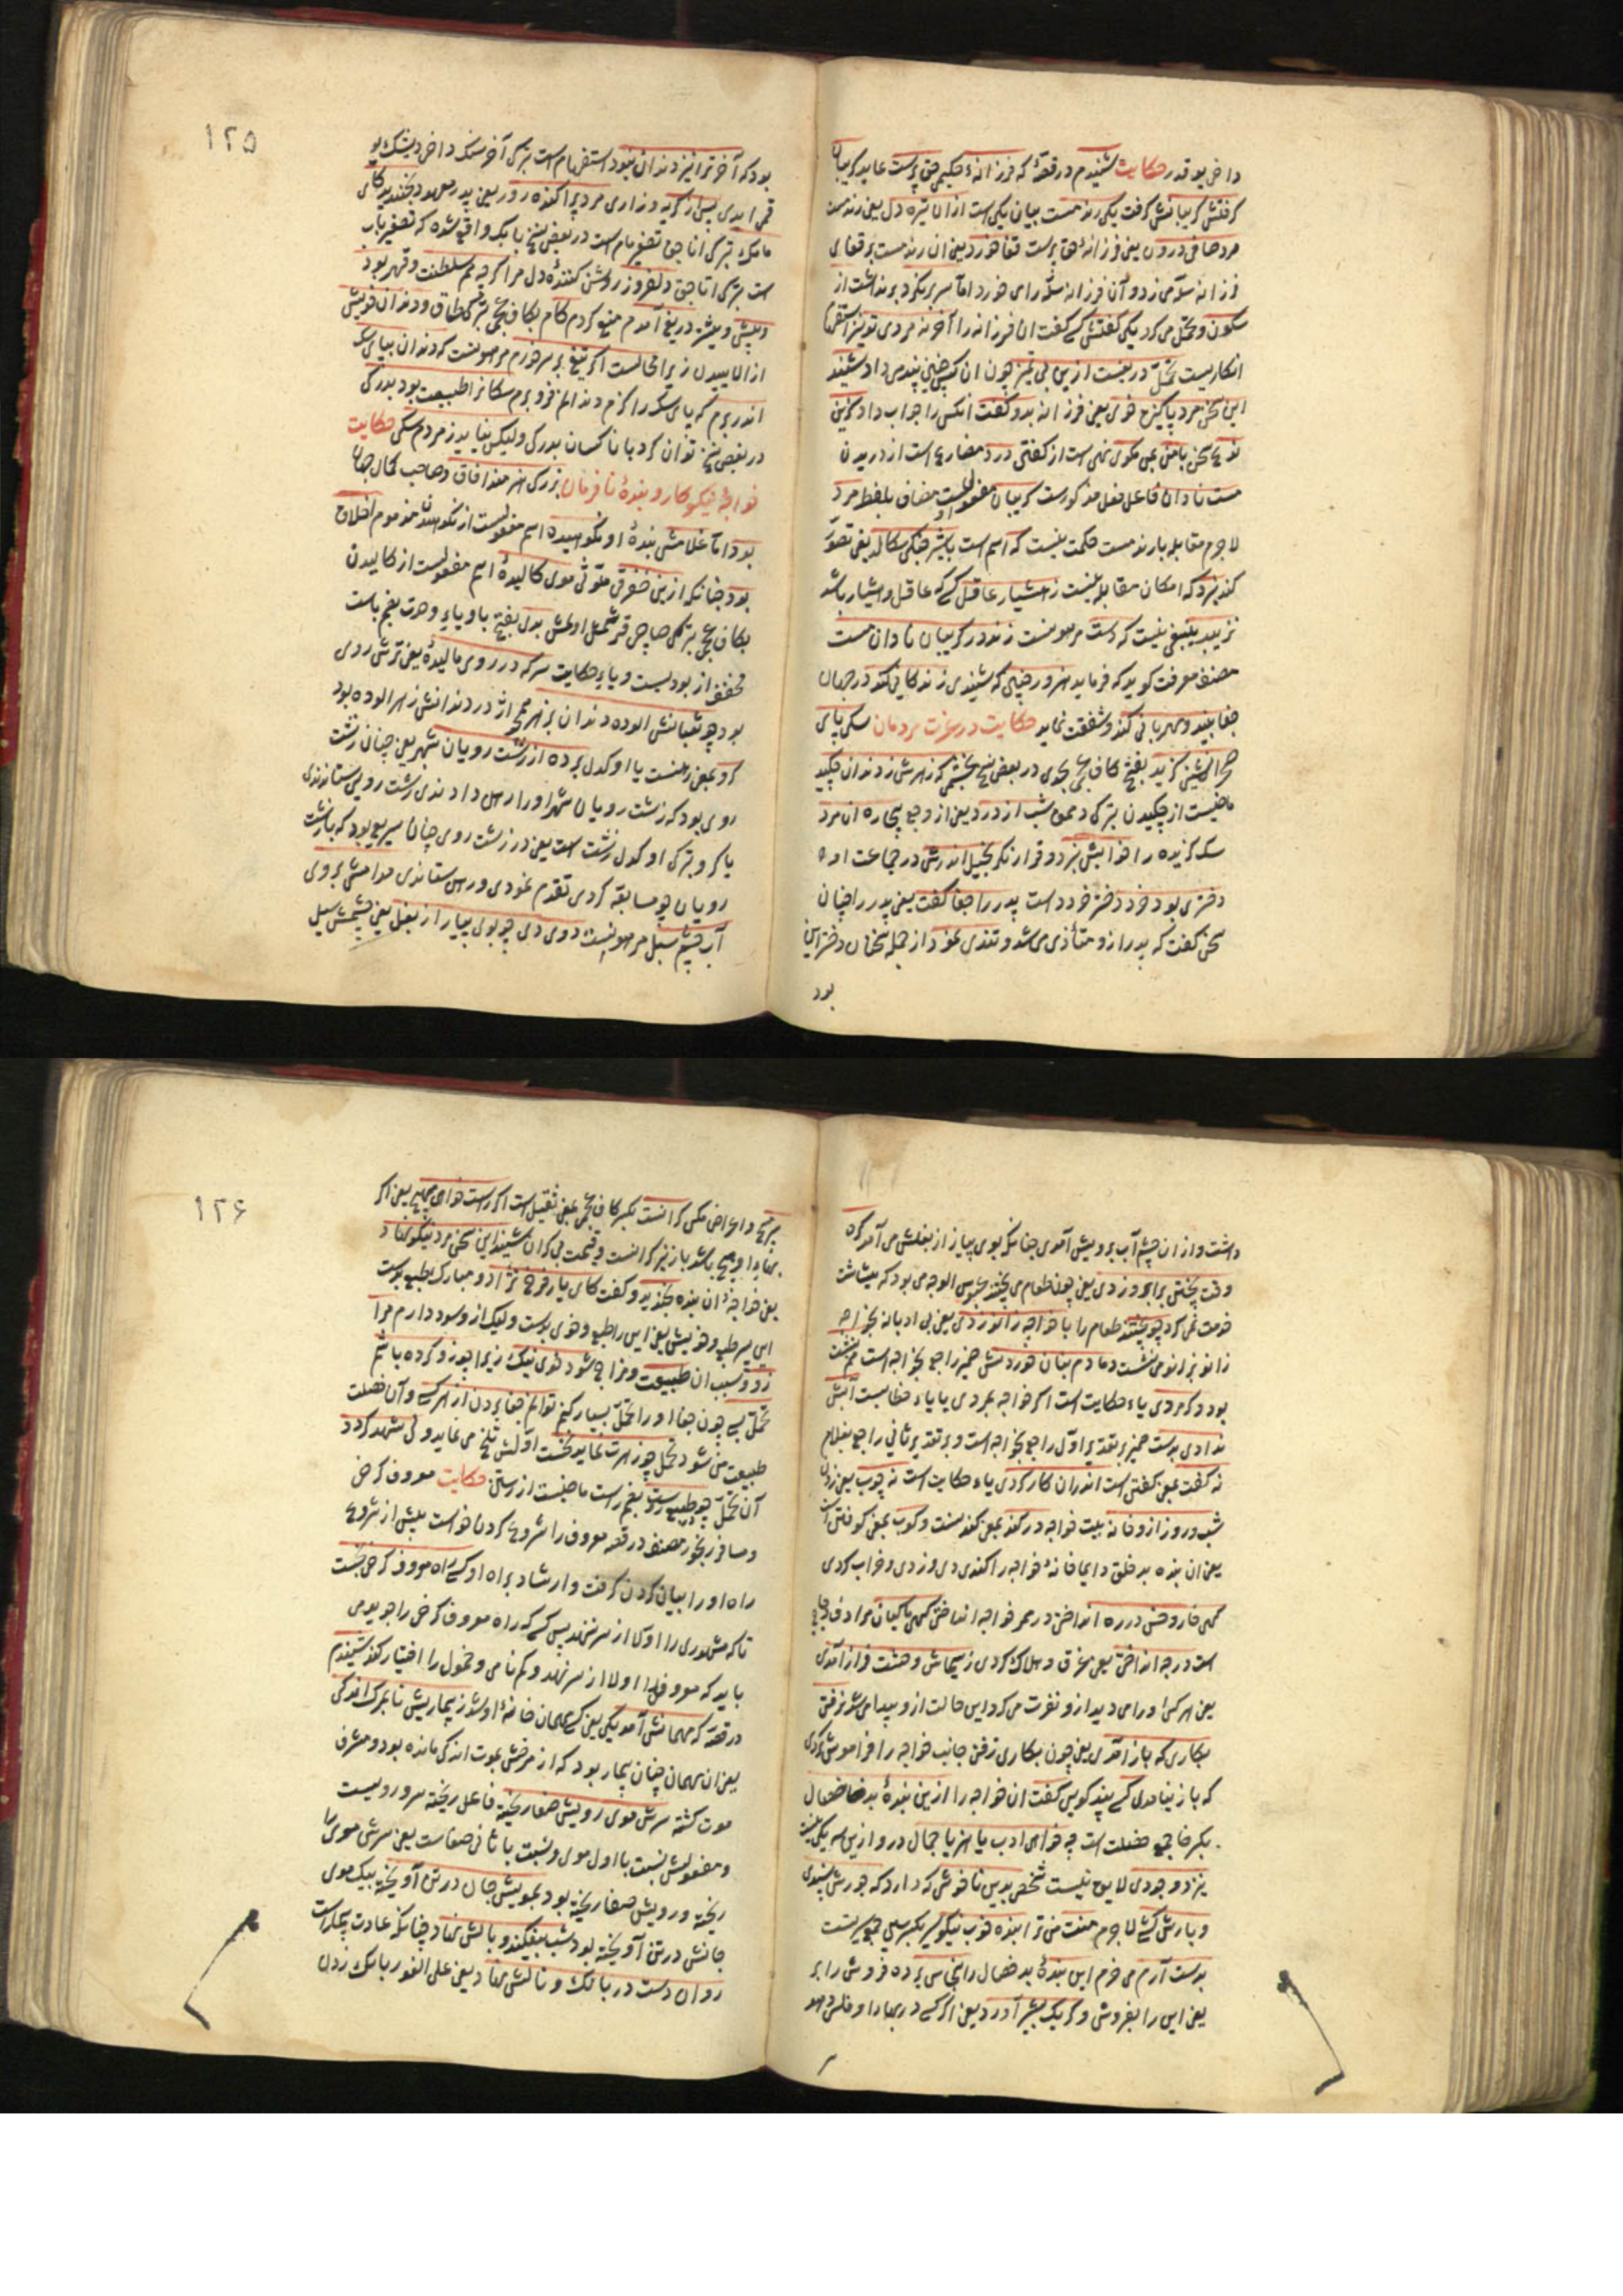 داخی بو قدر حکایت شنیدم در قصهٔ که فرزانهٔ حکیمی حق پرست عاید گریبان
گرفتش گریبانش گرفت یکی رند مست بیان یکی است از ان تیره دل یعنی رند مست
مرد صافی درون یعنی فرزانهٔ حق پرست قفا خورد یعنی ان رند مست بر قفای
فرزانه سلّه می زد و آن فرزانه سلّه رای خورد اما سر بر نکرد برنداشت از
سکون و تحمّل می کرد یکی گفتش کسی گفت ان فرزانه را آخر نه مردی تو نیز استفهام
انکاریست تحمّل دریغست ازین بی تمیز چون ان کسی چنین پند می داد شنید
این سخن مرد پاکیزه خوی یعنی فرزانه بدو گفت انکس را جواب داد کزین
نوع سخن با من مگوی نهی است از گفتن درد مضارع است از دریدن
مست نادان فاعل فعل مذکورست گریبان مفعولست مضاف بلفظ مرد
لاجرم مقابله با رند مست حکمت نیست که اسم است با شیر جنکی سکالد یعنی تصوّر
کند نبرد که امکان مقابله نیست ز هشیار عاقل کسی که عاقل و هشیار باشد
نزیبد ینبغی نیست که دست مرهونست زند در گریبان نادان مست
مصنف معرفت کوید که فرماید هنرور چنین که شنیدی زندکانی کند در جهان
جفا بیند و مهربانی کند و شفقت نماید حکایت در عزت مردمان سکی پای
صحرا نشینی گزید بفتح کاف عجمی بحدی در بعض نسخ بخشمی که زهرش ز دندان چکید
ماضیست از چکیدن بترکی دملمق شب از درد یعنی از وجع بیچاره ان مرد
سک گزیده را خوابش نبرد و قرار نکرد بخیل اندرش در جماعت او
دختری بود خرد دختر خرد داست پدر را جفا گفت یعنی پدر را چنان
سخن گفت که پدر ازو متأذی می شد و تندی نمود از جمله سخنان دختر این
بود
۱۲۵
بود که آخر ترا نیز دندان نبود استفهام است بترکی آخر سنک داخی دیشک یو
قمی ایدی پس از گریه و زاری مرد پراکنده روز یعنی پدر معهود بخندید کای
مامک بترکی اناجق تصغیر مام است در بعض نسخ بابک واقع شده که تصغیر باب
است بترکی اتاجق دلفروز روشن کنندهٔ دل مرا کرچه هم سلطنت و قهر بود
و پیش و بیشتر دریغ آمدم منع کردم کام بکاف عجمی بترکی طماق و دندان خویش
از الاییدن زیرا محالست اگر تیغ بر سر خورم مرهونست که دندان بپای سک
اندر برم که پای سک را گزم و دندانم فرو برم سکانرا طبیعت بود بدرکی
در بعض نسخ توان کرد با ناکسان بدرکی ولیکن نیاید ز مردم سکی حکایت
خواجهٔ نیکوکار و بندهٔ نافرمان بزرکی هنرمند افاق و صاحب کمال جهان
بود اما غلامش بندهٔ او نکوهیده اسم مفعولست از نکوهیدن مذموم اخلاق
بود چنانکه ازین خفرقی ملوّثی موی کالیدهٔ اسم مفعولست از کالیدن
بکاف عجمی بترکی صاچی قرشمش اولمش بدی بفتح با و یاء وحدت بضم باست
مخفف از بودیست و یاء حکایت سرکه در روی مالیدهٔ یعنی ترش روی
بود چو ثعبانش الوده دندان بزهر همچو اژدر دندانش زهر الوده بود
کرو بمعنی رهنست یا او کدل برده از زشت رویان شهر یعنی چنان زشت
روی بود که زشت رویان شهر او را رهن دادندی زشت رویی ستاندندی
یا کرو بترکی اوکدل زشت است یعنی در زشت روی چنان سریع بود که با زشت
رویان چو مسابقه کردی تقدم نمودی و رهن ستاندی مدامش بروی
آب چشم سبل مرهونست دویدی چو بوی پیاز از بغل یعنی چشمش سبل
داشت و از ان چشم آب برویش آمدی چنانکه بوی پیاز از بغلش می آمد گره
وقت پختن بر ابرو زدی یعنی چون طعام می پخت عبوس الوجه می بود که بیشاشت
خدمت نمی کرد چو پختند طعام را با خواجه زانو زدی یعنی بی ادبانه بخواجه
زانو بزانو می نشست دمادم بنان خوردنش ضمیر راجع بخواجه است هم نشست
بود و کر مردی یاء حکایت است اکر خواجه بمردی یا یاء خطابست آبش
ندادی بدست ضمیر بر تقدیر اوّل راجع بخواجه است و بر تقدیر ثانی راجع بغلام
نه گفت بمعنی گفتن است اندران کار کردی یاء حکایت است نه چوب یعنی زدن
شب و روز ازو خانه بیت خواجه در کند بمعنی کندنست و کوب بمعنی کوفتن است
یعنی ان بنده بد خلق دایما خانهٔ خواجه را کندی دزدیدی و خراب کردی
کهی خار و خس در ره انداختن در ممر خواجه انداختی کهی ماکیان مرادف دجاجه
است در چه انداختی یعنی غرق و هلاک کردی ز سیماش وحشت فراز آمدی
یعنی هر کس او را می دید ازو نفرت می کرد این حالت ازو پیدا می شد نرفتی
بکاری که باز آمدی یعنی چون بکاری رفتی جانب خواجه را فراموش کردی
که باز نیامدی کسی پند کویی گفت ان خواجه را ازین بندهٔ بد خصال
بکسر خا جمع خصلت است چه خواهی ادب یا هنر یا جمال درو ازین سه یکی نیست
نیرزد وجودی لایق نیست شخصی بدین ناخوشی که دارد که جورش پسندی
و بارش کشی لاجرم منت من ترا بندهٔ خوب نیکو سیر بکسر سین جمع سیرتست
بدست آرم می خرم این بندهٔ بد خصال را نخاس برده فروش را بر
یعنی این را بفروش و کر یک پشیز آورد یعنی اکر کسی در بها او فلس دهد
۱۲۶
مپیچ و اعراض مکن گرانست بکسر کاف عجمی بمعنی ثقیل است اگر راست خواهی بهیچ یعنی اگر
بهاء او هیچ باشد باز نیز گرانست و قیمت بی کران شنید این سخن مرد نیکو نهاد
یعنی خواجهٔ ان بنده بخندید و گفت کای یار فرخ نژاد و مبارک طبع بدست
این پسر طبع و خویش یعنی این را طبع و خوی بدست ولیک ازو سود دارم مرا
زو و سبب ان طبیعت و مزاج شود خوی نیک زیرا چو زو کرده باشم
تحمّل بسی چون جفا او را تحمّل بسیار کنم توانم جفا بردن از هر کسی و آن خصلت
طبیعت من شود تحمّل چو زهرت نماید نخست اوّلش تلخ می نماید ولی شهد کردد
آن تحمّل چو در طبع رست بضم راست ماضیست از رستن حکایت معروف کرخی
و مسافر رنجور مصنف در قصه معروف را شروع کردن خواست پیش از شروع
راه او را بیان کردن گرفت و ارشاد براه او کسی راه معروف کرخی نجست
تا که مشهوری را اولا از سر ننهد پس کسی که راه معروف کرخی را جوید می
باید که معروفی را اولا از سر نهد و کم نامی و خمول را اختیار کند شنیدم
در قصه که مهمانش آمد یکی یعنی کسی مهمان خانهٔ او شد ز بیماریش تا بمرک اندکی
یعنی ان مهمان چنان بیمار بود که از مرضش بموت اندکی مانده بود و مشرف
موت کشته سرش موی و رویش صفا ریخته فاعل ریخته سر و رویست
و مفعولش نسبت با اول موی و نسبت با ثانی صفاست یعنی سرش موی را
ریخته و رویش صفا ریخته بود بمویش جان در تن آویخته بیک موی
جانش در تن آویخته بود شب بیفکند و بالش نهاد چنانکه عادت بیمارانست
روان دست در بانک و نالش نهاد یعنی علی الفور بانک زدن